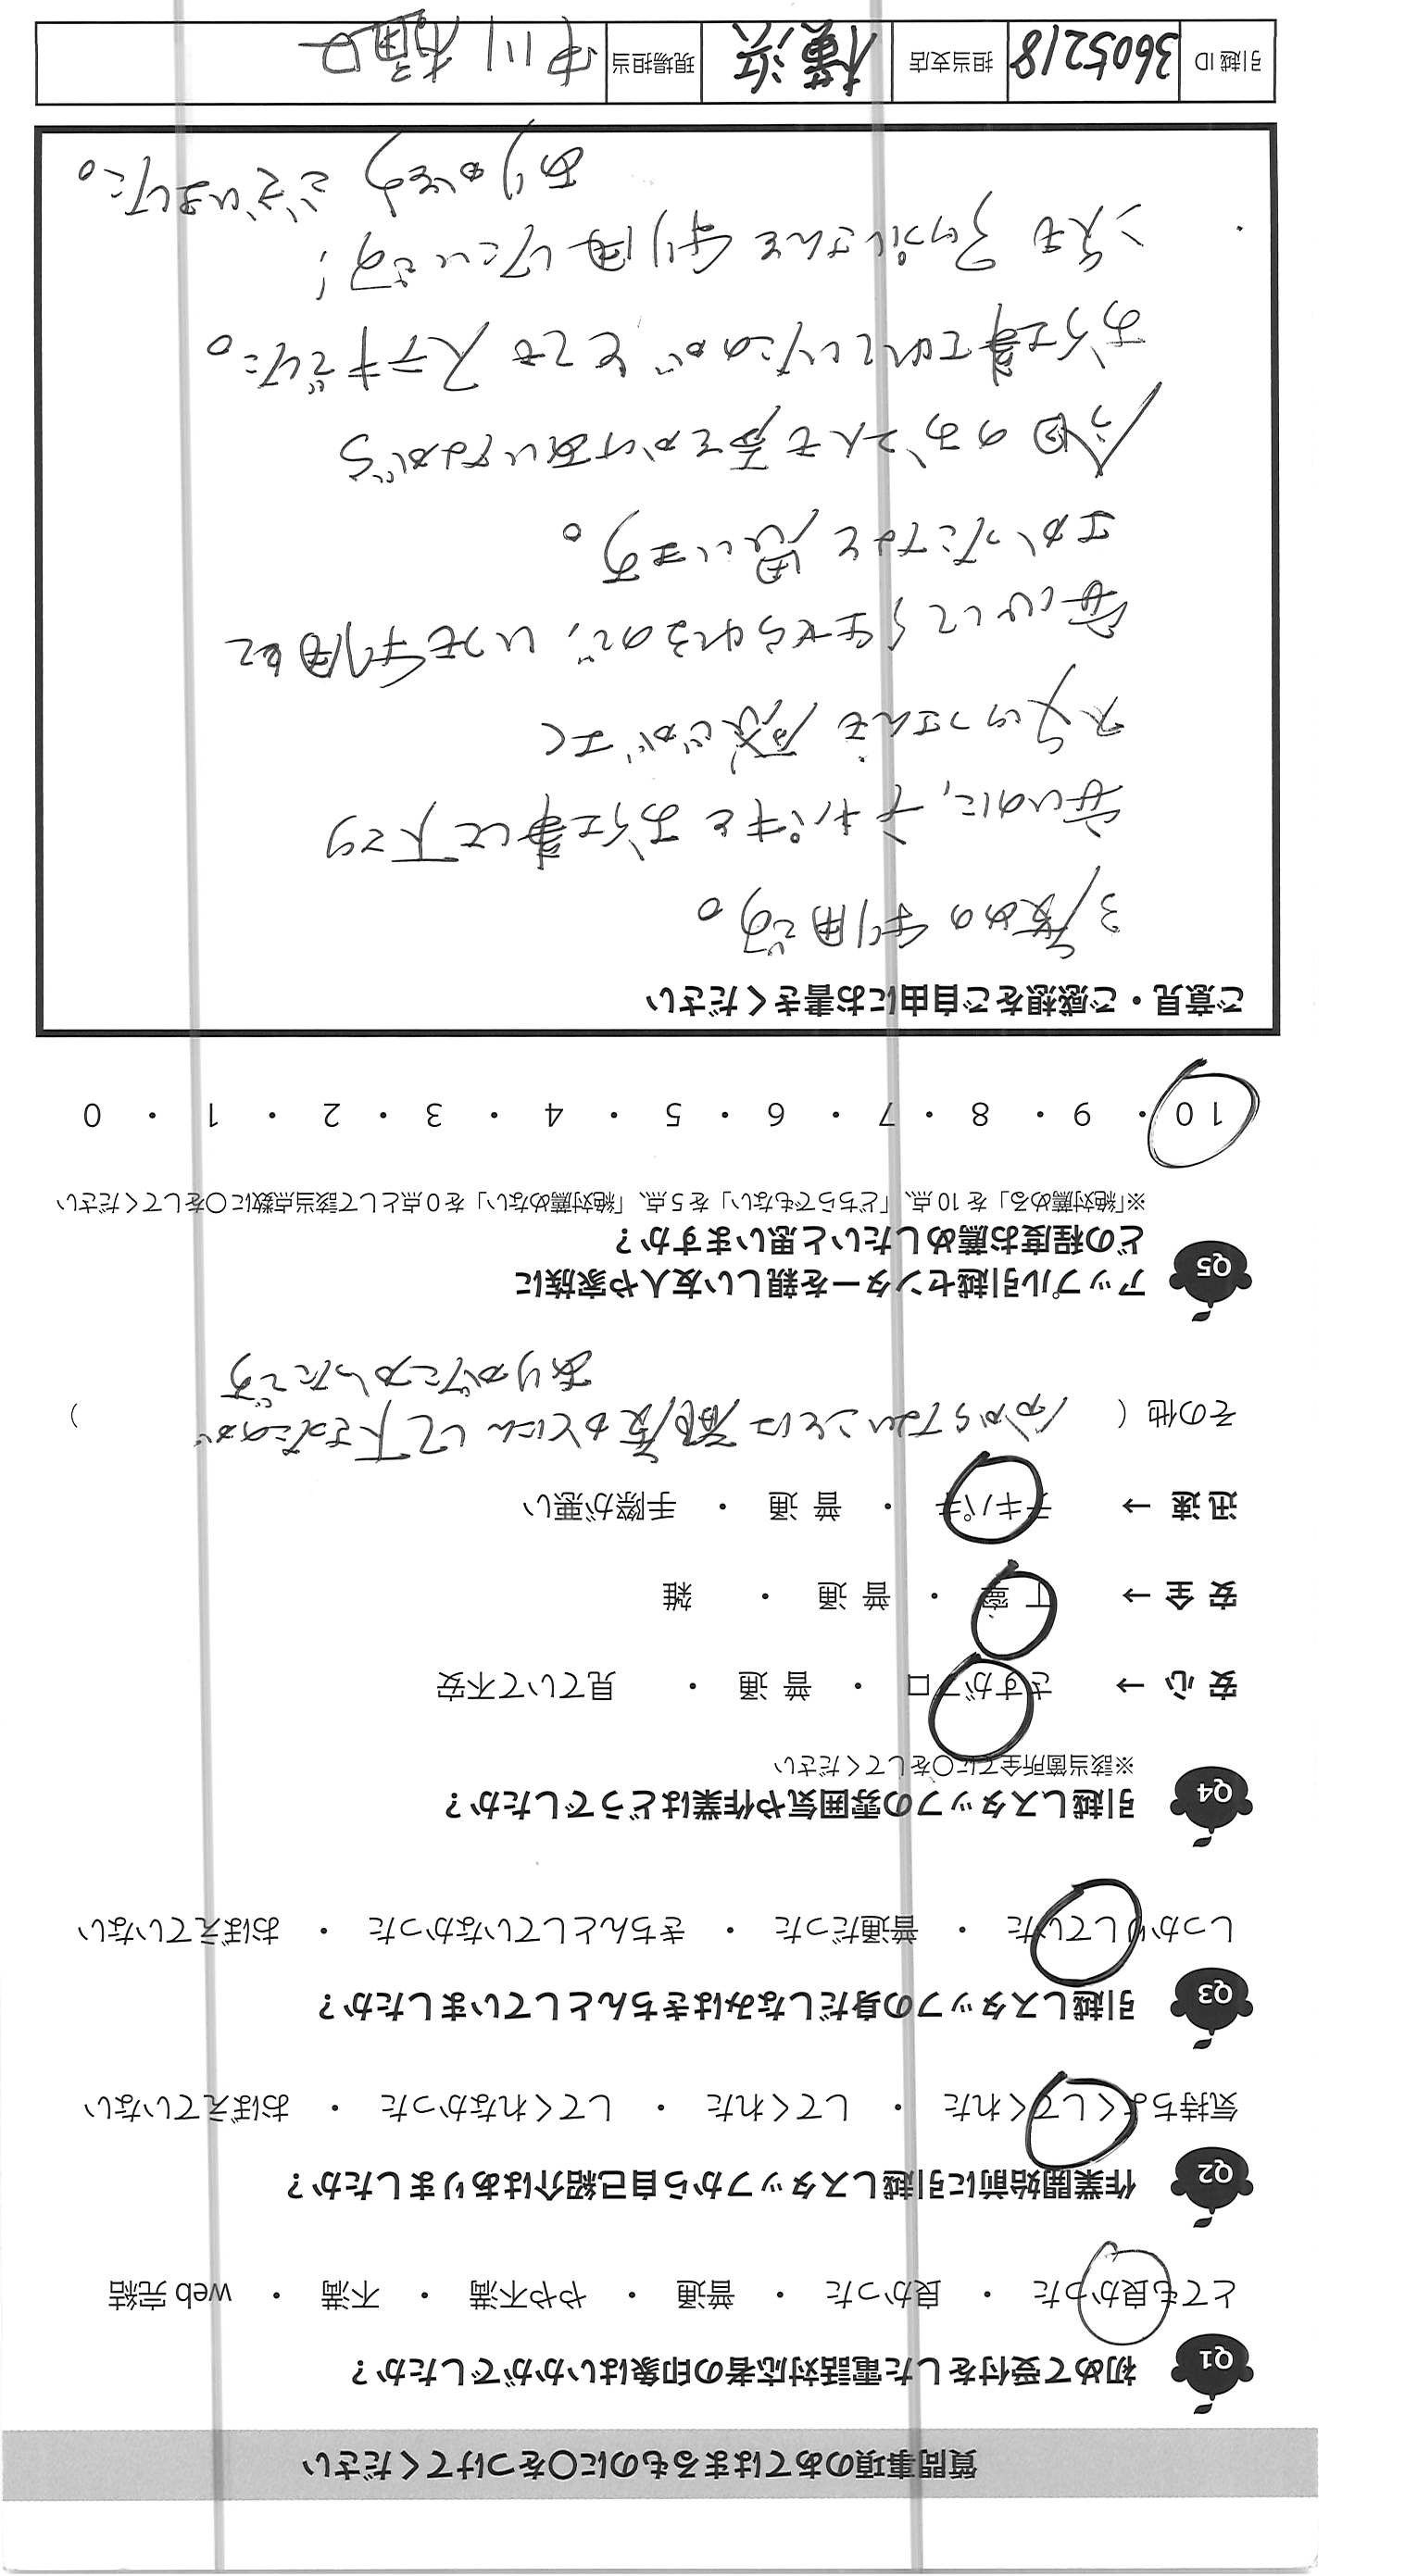 質問事項のあてはまるものに○をつけてください
Q1 初めて受付をした電話対応者の印象はいかがでしたか？
とても良かった ・ 良かった ・ 普通 ・ やや不満 ・ 不満 ・ web 完結
Q2 作業開始前に引越しスタッフから自己紹介はありましたか？
気持ちよくしてくれた ・ してくれた ・ してくれなかった ・ おぼえていない
Q3 引越しスタッフの身だしなみはきちんとしていましたか？
しっかりしていた ・ 普通だった ・ きちんとしていなかった ・ おぼえていない
Q4 引越しスタッフの雰囲気や作業はどうでしたか？
※該当箇所全てに○をしてください
安 心 → さすがプロ ・ 普 通 ・ 見ていて不安
安 全 → 丁 寧 ・ 普 通 ・ 雑
迅 速 → テキパキ ・ 普 通 ・ 手際が悪い
その他（ 分からないことは都度かくにんして下さったのが ）
ありがたかったです
Q5 アップル引越センターを親しい友人や家族に
どの程度お薦めしたいと思いますか？
※「絶対薦める」を 10 点、「どちらでもない」を 5 点、「絶対薦めない」を 0 点として該当点数に○をしてください
10 ・ 9 ・ 8 ・ 7 ・ 6 ・ 5 ・ 4 ・ 3 ・ 2 ・ 1 ・ 0
ご意見・ご感想をご自由にお書きください
3度めの利用です。
安いのに、テキパキとお仕事して下さり
スタッフさんも感じがよく
安心して任せられるので、いつも利用して
よかったなと思います。
今回のお二人も声をかけあいながら
お仕事されていたのがとてもステキでした。
次もアップルさんを利用したいです！
ありがとうございました。
引越 ID 3605218 担当支店 横浜 現場担当 中川 樋口